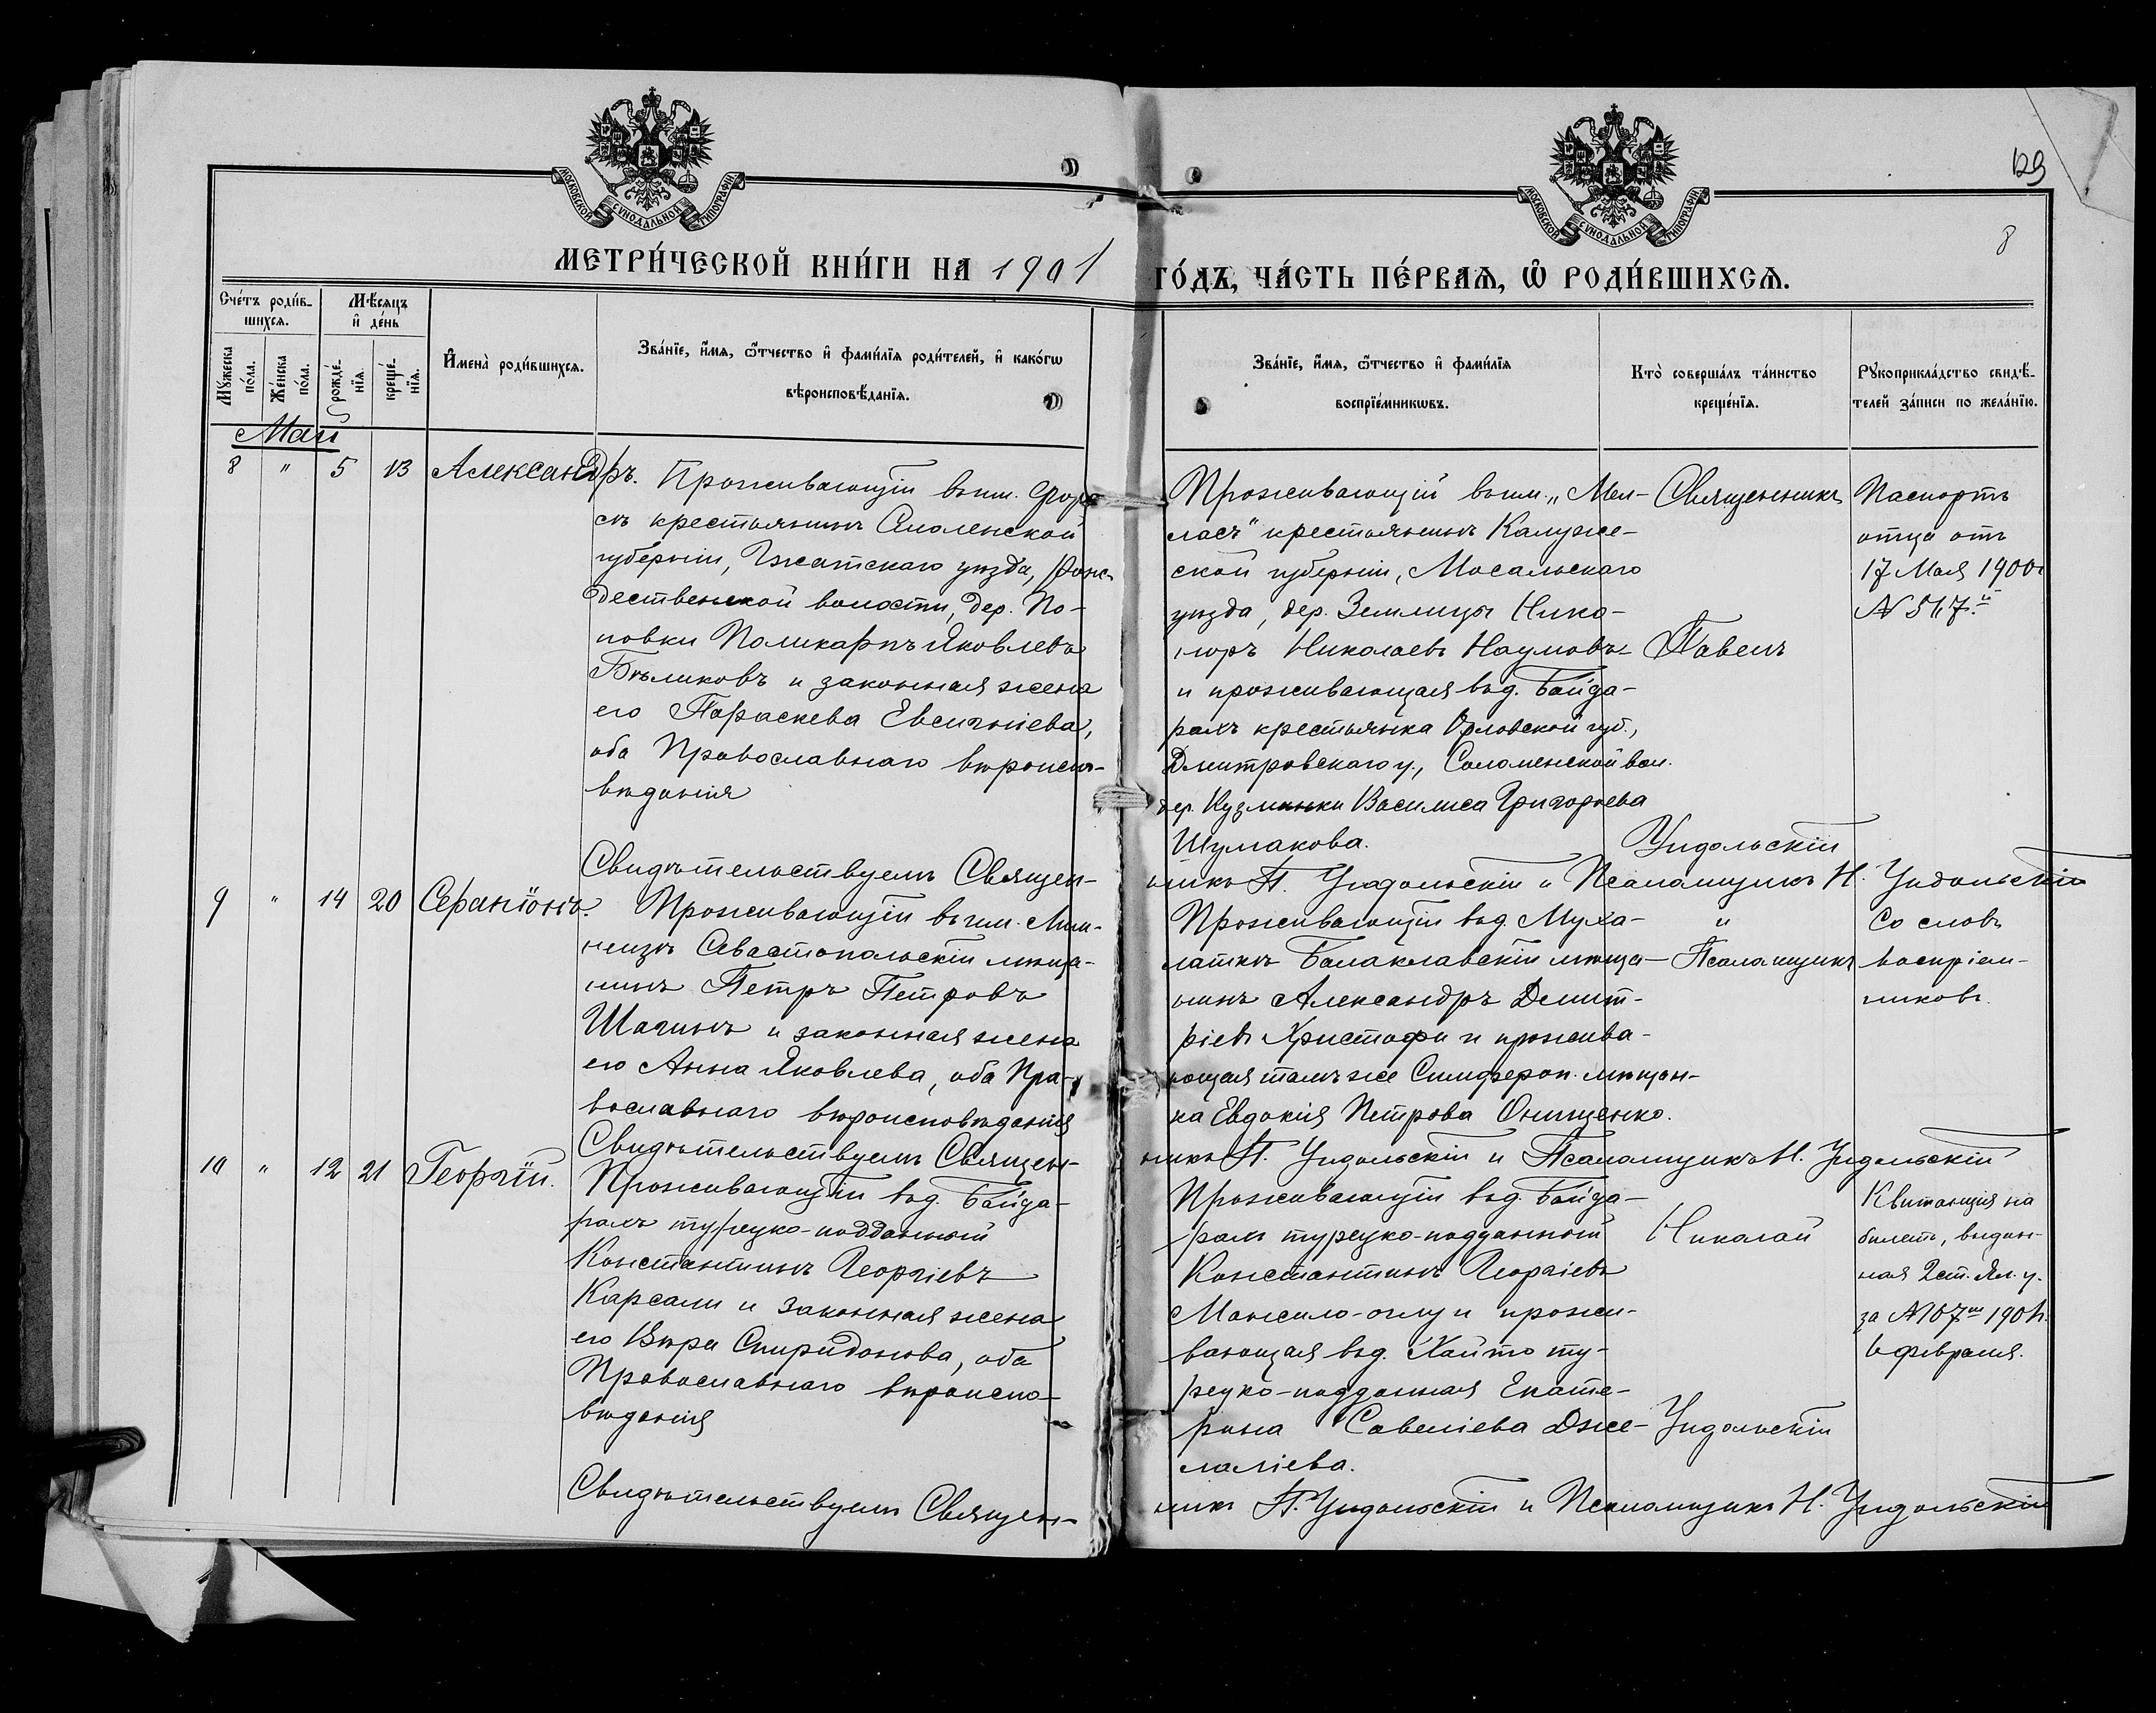 129
8
МОСКОВСКОЙ СѴНОДАЛЬНОЙ ТИПОГРАФІИ
МОСКОВСКОЙ СѴНОДАЛЬНОЙ ТИПОГРАФІИ
МЕТРИ́ЧЕСКОЙ КНИ́ГИ НА 1901
ГО́ДЪ, ЧА́СТЬ ПЕ́РВАѦ, Ѡ҆ РОДИ́ВШИХСѦ.
Сче́тъ роди́в-
шихсѧ.
Мѣ́сѧцъ
и҆ де́нь
Мꙋ́жеска по́ла.
Же́нска по́ла.
рожде́-
нїѧ.
креще́-
нїѧ.
И҆мена̀ роди́вшихсѧ.
Зва́нїе, и҆́мѧ, ѻ҆́тчество и҆ фами́лїѧ роди́телей, и҆ како́гѡ
вѣроисповѣ́данїѧ.
Зва́нїе, и҆́мѧ, ѻ҆́тчество и҆ фами́лїѧ
воспрїе́мникѡвъ.
Кто̀ соверша́лъ та́инство
креще́нїѧ.
Рꙋкоприкла́дство свидѣ́-
телей за́писи по жела́нїю.
Май
8 " 5 13 Александръ.
Проживающій въ им. Форо-
съ крестьянинъ Смоленской
губерніи, Гжатскаго уѣзда, Рож-
дественской волости, дер. По-
повки Поликарпъ Яковлевъ
Бѣликовъ и законная жена
его Параскева Евсигніева,
оба Православнаго вѣроиспо-
вѣданія
Проживающій въ им. „Мел-
ласъ" крестьянинъ Калуж-
ской губерніи, Мосальскаго
уѣзда, дер. Землицы Ника-
норъ Николаевъ Наумовъ
и проживающая въ д. Байда-
рахъ крестьянка Орловской губ.,
Дмитровскаго у., Соломенской вол.
дер. Кузминки Василиса Григорьева
Шумакова.
Священникъ
Павелъ
Ундольскій
Паспортъ
отца отъ
17 Мая 1900 г.
№ 517.й
Свидѣтельствуемъ Священ-
никъ П. Ундольскій и Псаломщикъ Н. Ундольскій
9 " 14 20 Серапіонъ.
Проживающій въ им.
Севастопольскій мѣща-
нинъ Петръ Петровъ
Шагинъ и законная жена
его Анна Яковлева, оба Пра-
вославнаго вѣроисповѣданія
Проживающій въ д. Муха-
латкѣ Балаклавскій мѣща-
нинъ Александръ Дмит-
ріевъ Христофи и прожива-
ющая тамъ же Симфероп. мѣщан-
ка Евдокія Петрова Онищенко.
и
Псаломщикъ
Со словъ
воспріем-
никовъ.
Свидѣтельствуемъ Священ-
никъ П. Ундольскій и Псаломщикъ Н. Ундольскій
10 " 12 21 Георгій.
Проживающій въ д. Байда-
рахъ турецко-подданный
Константинъ Георгіевъ
Карсали и законная жена
его Вѣра Спиридонова, оба
Православнаго вѣроиспо-
вѣданія
Проживающій въ д. Байда-
рахъ турецко-подданный
Константинъ Георгіевъ
Манжило-оглу и прожи-
вающая въ д. Хайто ту-
рецко-подданная Екате-
рина Савеліева Дже-
маліева.
Николай
Ундольскій
Квитанція на
билетъ, выдан-
ная 2 ст. Ял. у.
за № 107м 1901 г.
6 февраля.
Свидѣтельствуемъ Священ-
никъ П. Ундольскій и Псаломщикъ Н. Ундольскій